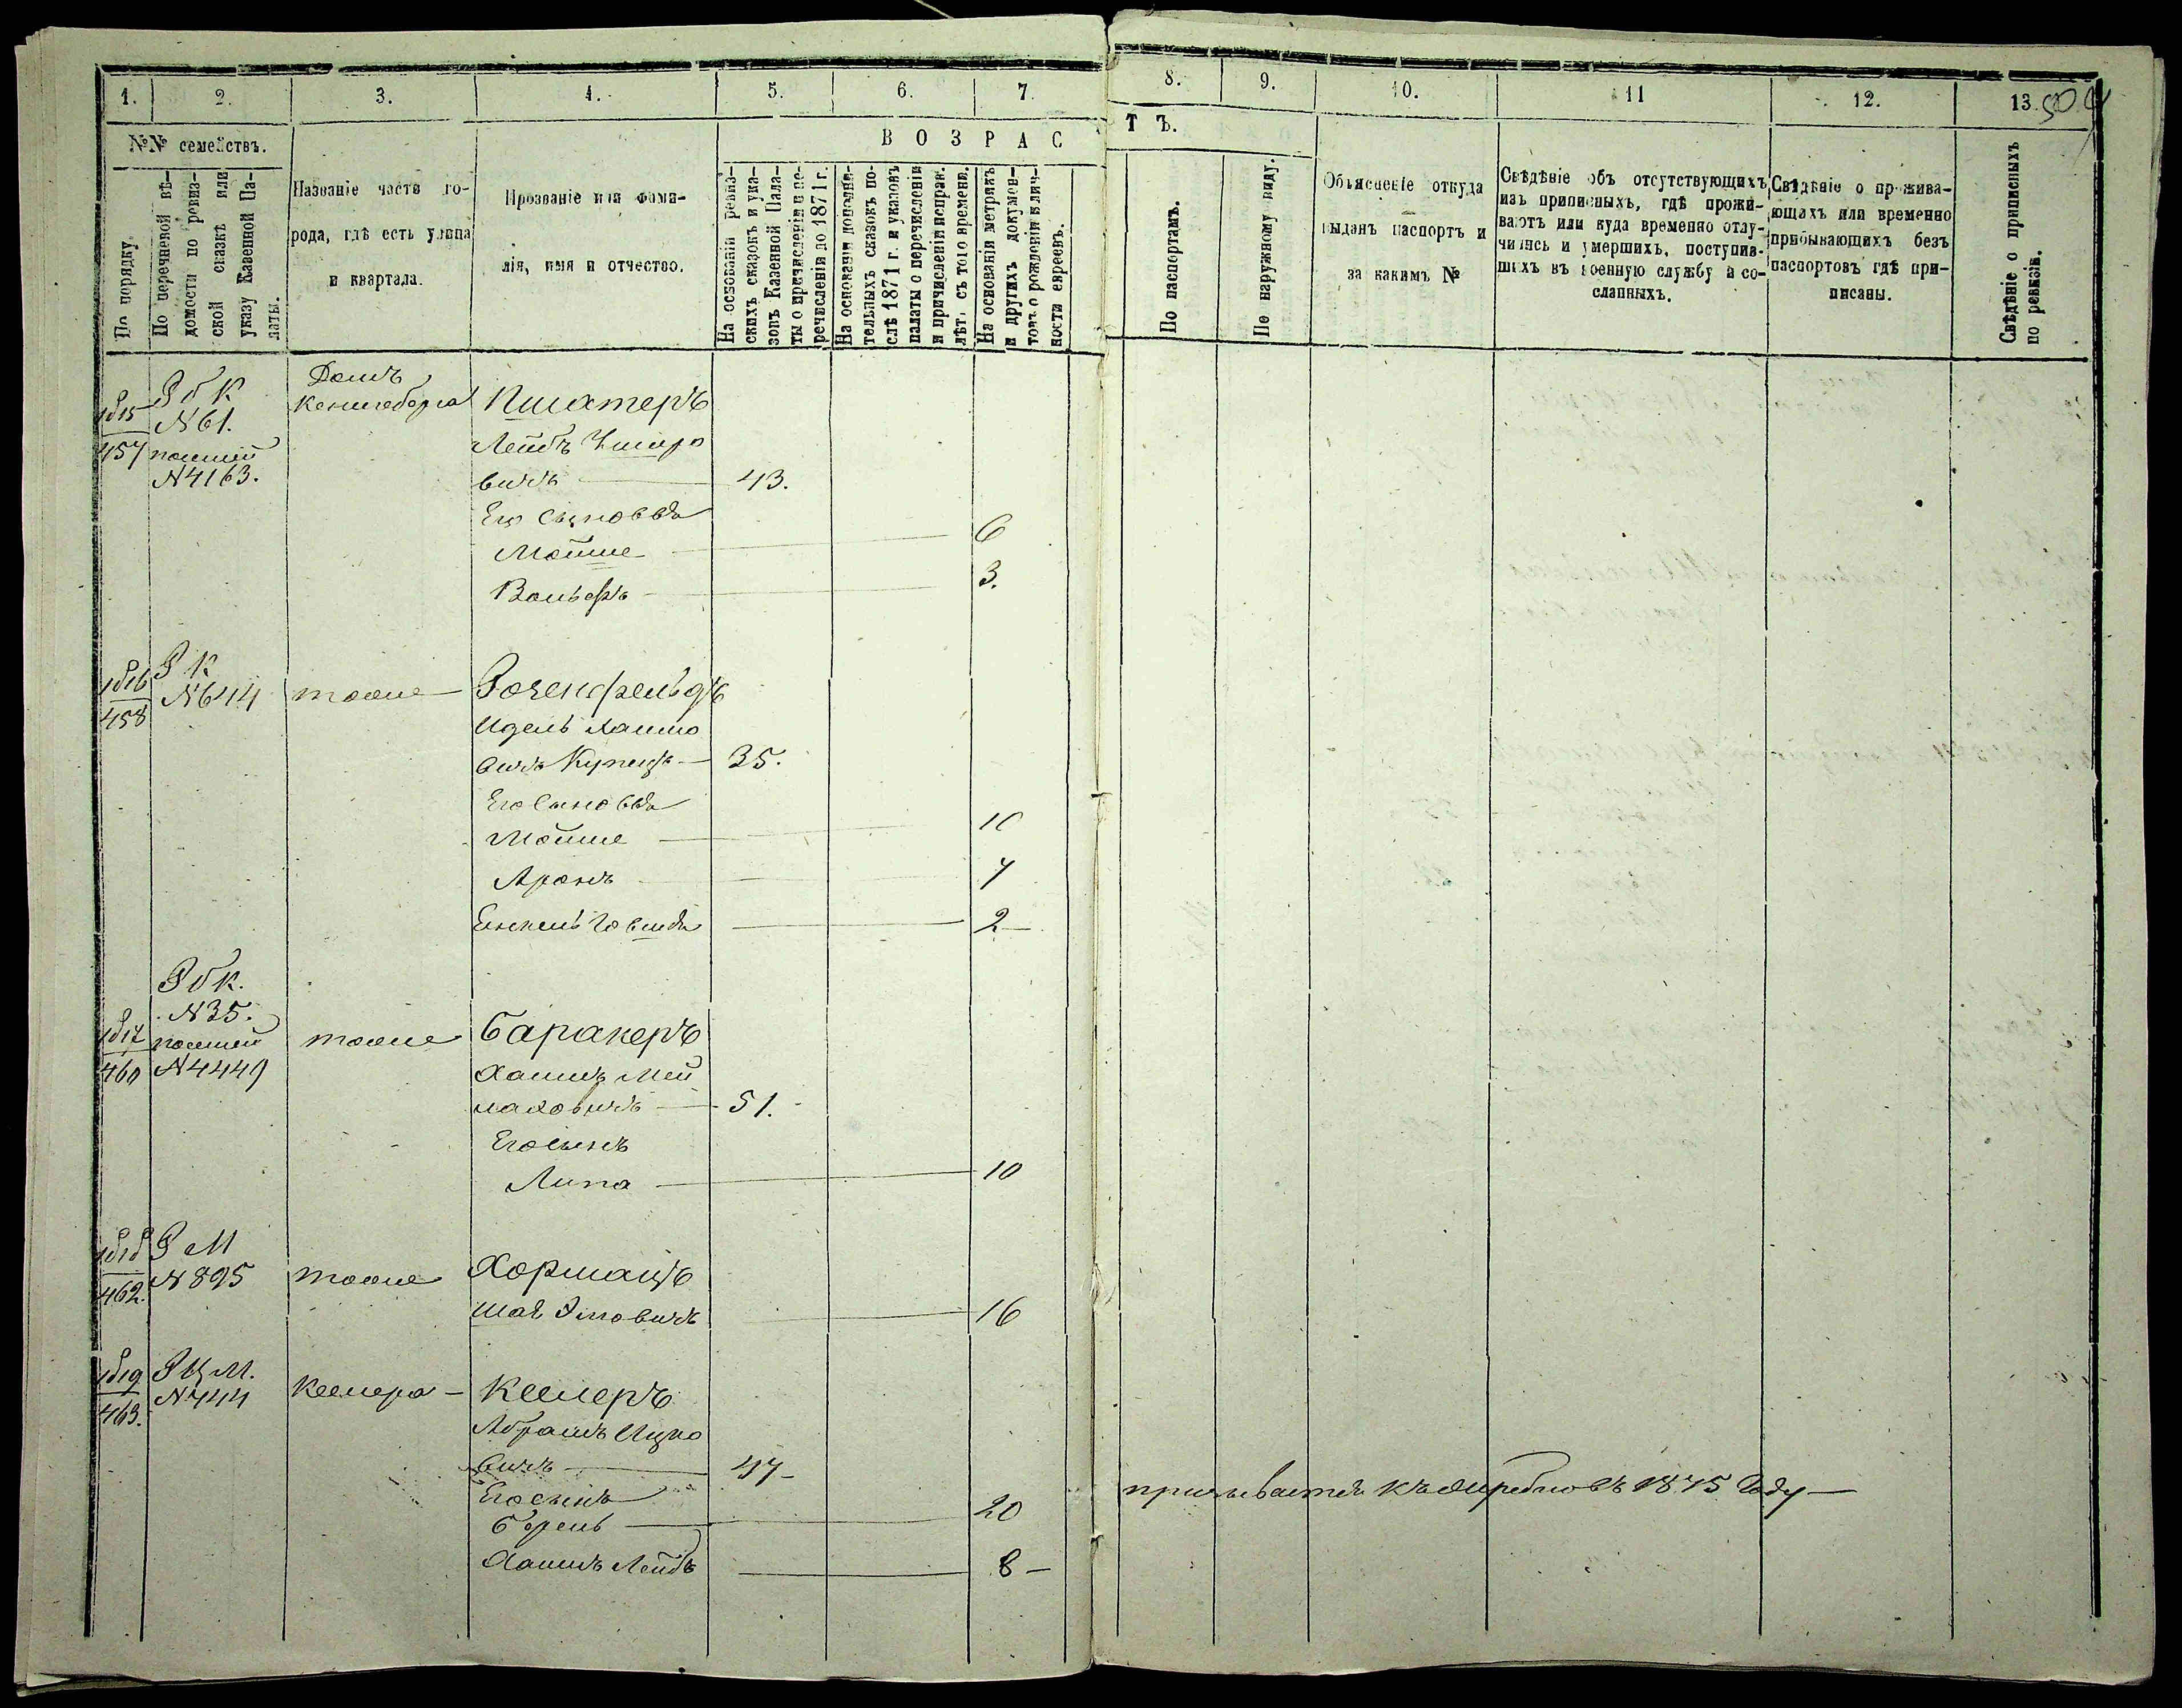 1. 2. 3. 4. 5. 6. 7. 8. 9. 10. 11 12. 13.
№№ семействъ.
По порядку.
По перечневой вѣ-
домости по ревиз-
ской сказкѣ или
указу Казенной Па-
латы.
Названіе части го-
рода, гдѣ есть улица
и квартала.
Прозваніе или фами-
лія, имя и отчество.
ВОЗРАСТЪ.
На основаніи ревиз-
скихъ сказокъ и ука-
зовъ Казенной Пала-
ты о причисленіи и пе-
речисленіи до 1871 г.
На основаніи дополни-
тельныхъ сказокъ по-
слѣ 1871 г. и указовъ
палаты о перечисленіи
и причисленіи исправ.
лѣтъ съ того времени.
На основаніи метрикъ
и другихъ докумен-
товъ о рожденіи и лич-
ности евреевъ.
По паспортамъ.
По наружному виду.
Объясненіе откуда
выданъ паспортъ и
за какимъ №
Свѣдѣніе объ отсутствующихъ
изъ приписныхъ, гдѣ прожи-
ваютъ или куда временно отлу-
чились и умершихъ, поступив-
шихъ въ военную службу и со-
сланныхъ.
Свѣдѣніе о прожива-
ющихъ или временно
прибывающихъ безъ
паспортовъ гдѣ при-
писаны.
Свѣдѣніе о приписныхъ
по ревизіи.
Домъ
Р б К
1815 №61. Кенигсберга Пшатеръ
457
№4163. Лейбъ
вичъ 43.
Его сыновья
Мойше 6
Вольфъ 3.
Р К
1816 №644 тоже Розенфельдъ
458
Идель Хаимо
вичъ Купецъ 35.
Его сыновья
Мойше 10
Аронъ 7
2
Р б К.
№35.
1817 тоже Баракеръ
460 №4449
Хаимъ Мей
лаховичъ 51.
Его сынъ
Липа 10
Р М
1818 №895 тоже Хормацъ
462.
16
Р Ц М.
1819 №444 Келлера Келлеръ
463.
Абрамъ Ицко
вичъ 47
Его сынъ
Берель 20 призывается къ жребію въ 1875 году
Хаимъ Лейбъ 8